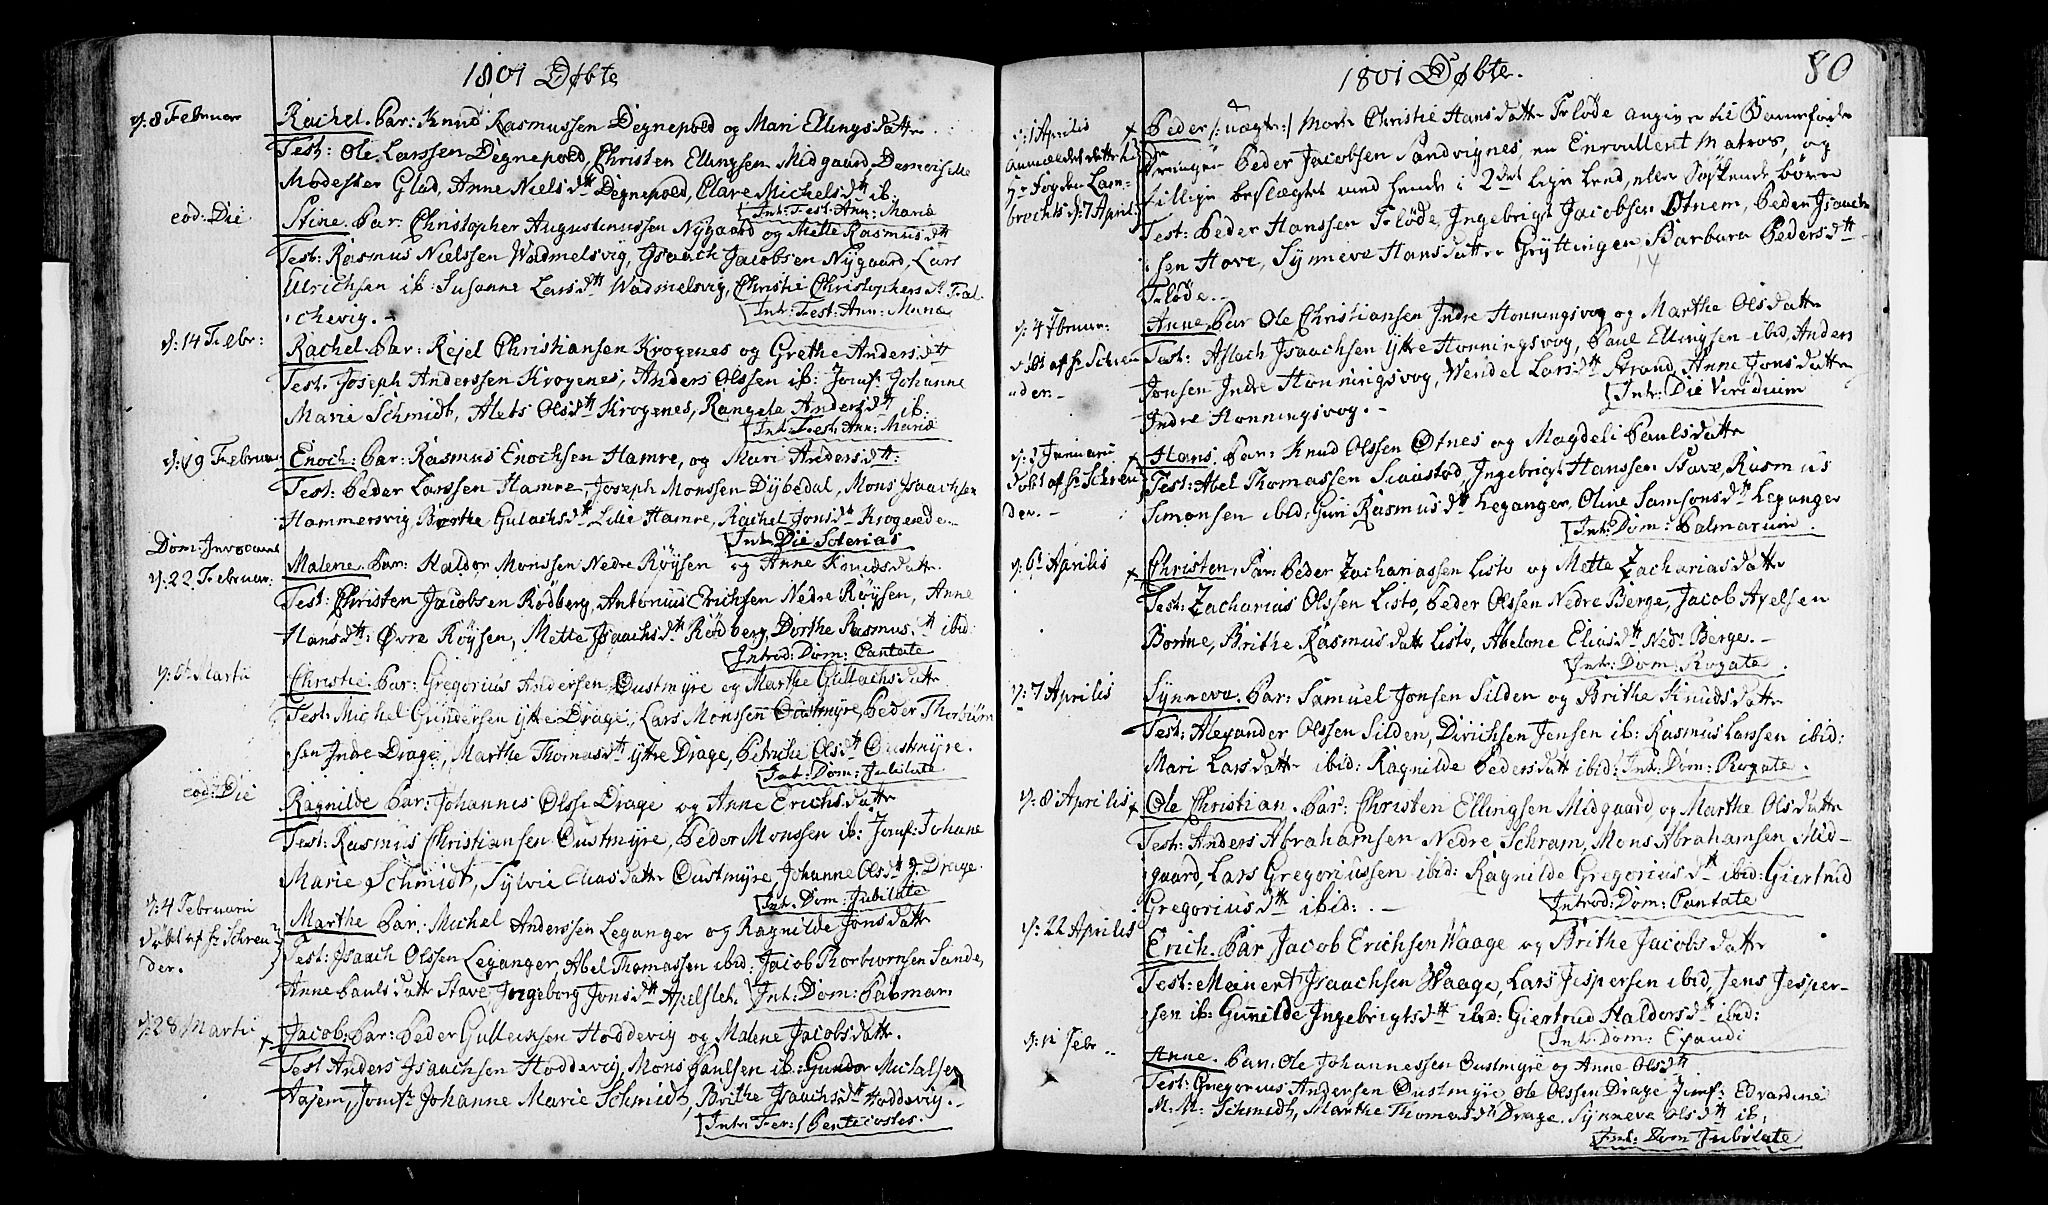 1801 Døbte
d: 8 Februar
Rachel. Par: Knud Rasmussen Degnepold og Mari Ellingsdatter
Test: Ole Larssen Degnepold, Christen Ellingsen Midgaard, Demoiselle
Modester Glad, Anne Nielsdtt Degnepold, Clare Michelsdtt ib:
Int: Fest: Ann: Mariæ
eod: Die
Stine. Par: Christopher Augustinussen Nygaard og Mette Rasmusdtt
Test: Rasmus Nielssen Wadmelsvig, Isaach Jacobsen Nygaard, Lars
Ulrichsen ib: Susanne Larsdtt Wadmelsvig, Christie Christophersdtt Fal-
chevig. -
Int: Fest: Ann: Mariæ
d: 14 Febr:
Rachel. Par: Rejel Christiansen Krogenes og Grethe Andersdtt
Test: Joseph Anderssen Krogenes, Anders Olssen ib: Jomf: Johanne
Marie Schmidt, Alets Olsdtt Krogenes, Rangele Andersdtt ib:
Int: Fest: Ann: Mariæ
d: 19 Februar
Enoch: Par: Rasmus Enochsen Hamre, og Mari Andersdtt:
Test: Peder Larssen Hamre, Joseph Monssen Dybedal, Mons Isaachsen
Hammersvig, Berthe Gulachsdtt Lille Hamre, Rachel Jonsdtt Krogenede. -
Int: Die Soterias
Dom: Invocavit
d: 22 Februar:
Malene. Par: Haldor Monssen Nedre Røysen og Anne Knudsdatter
Test: Christen Jacobsen Rødberg, Antonius Erichsen Nedre Røysen, Anne
Hansdtt: Øvre Røysen, Mette Isaachsdtt Rødberg, Dorthe Rasmusdtt ibid:
Introd: Dom: Cantate
Martii
Christie. Par: Gregorius Andersen Oustmyre og Marthe Gullachsdatter
Test: Michel Gundersen ytte Drage, Lars Monssen Oustmyre, Peder Thorbiørn
sen Indre Drage, Marthe Thomasdtt ytte Drage, Petrike Olsdtt Oustmyre.
Int: Dom: Jubilate
eod: Die
Ragnilde Par: Johannes Olss: Drage og Anne Erichsdatter
Test: Rasmus Christiansen Oustmyre, Peder Monssen ib: Jomf: Johane
Marie Schmidt, Sylvie Eliasdatter Oustmyre, Johanne Olsdtt J. Drage.
Int: Dom: Jubilate
d: 4 Februarii
døbt af Hr Schreu-
der.
Marthe Par: Michel Anderssen Leganger og Ragnilde Jonsdatter
Test: Isaach Olssen Leganger, Abel Thomassen ibid: Jacob Thorbiørnsen Sande,
Anne Paulsdatter Stave, Ingeborg Jonsdtt Apelsleh. Int: Dom: Palmar:
d: 28 Martii
Jacob: Par: Peder Gulleiksen Hoddevig og Malene Jacobsdatter.
Test Anders Isaachsen Hoddevig, Mons Paulsen ib: Gundor Michelsen
Aajem, Jomfr: Johanne Marie Schmidt, Brithe Isaachsdtt Hoddevig. -
Int: Fer: 1 Pentecostes.
1801 Døbte.
80
d: 1 Aprilis
Anmældet dette til
Hr Fogden Lam-
brechts d: 7 April:
Peder /: uægte:/ Moder Christie Hansdatter Fløde angiver til Barnefader
Drengen Peder Jacobsen Sandvignes, en Enroullert Matros, og
tillige beslægtet med hende i 2det lige Leed, eller Søskende børn
Test: Peder Hanssen Fløde, Ingebrigt Jacobsen Otnem, Peder Isaach-
sen Hove, Synneve Hansdatter Gryttingen, Barbara Pedersdtt
Fløde. -
d: 4 Februar:
døbt af Hr Schreu
der. -
Anne. Par Ole Christiansen Indre Honningsvog og Marthe Olsdatter
Test: Aslach Isaachsen ytte Honningsvog, Paul Ellingsen ibid, Anders
Jonsen Indre Honningsvog, Wendel Larsdtt Strand, Anne Jonsdatter
Indre Honningsvog. -
Int: Die Viridium
Januari
døbt af Hr Schreu
der. -
Hans. Par: Knud Olssen Otnes og Magdeli Paulsdatter
Test: Abel Thomassen Skaastad, Ingebrigt Hanssen Stave, Rasmus
Simonsen ibid: Guri Rasmusdtt Leganger, Oline Samsonsdtt Leganger
Int: Dom: Palmarum.
d: 6 Aprilis
Christen. Par: Peder Zachariassen Listo og Mette Zachariasdatter
Test: Zacharias Olssen Listo, Peder Olssen Nedre Berge, Jacob Axelsen
Bortne, Brithe Rasmusdatter Listo, Abelone Eliasdtt Nedr Berge. -
Int: Dom: Rogate.
d: 7 Aprilis
Synneva. Par: Samuel Jonsen Silden og Brithe Knudsdatter
Test: Alexander Olssen Silden, Dirichsen Jensen ib: Rasmus Larssen ibid:
Mari Larsdatter ibid: Ragnilde Pedersdatt ibid: Int: Dom: Rogate.
d: 8 Aprilis
Ole Christian. Par: Christen Ellingsen Midgaard, og Marthe Olsdatter
Test: Anders Abrahamsen Nedre Schram, Mons Abrahamsen Mid-
gaard, Lars Gregoriussen ibid: Ragnilde Gregoriusdtt ibid: Giertrud
Gregoriusdtt ibid: . -
Introd: Dom: Cantate
d: 22 Aprilis
Erich. Par Jacob Erichsen Waage og Brithe Jacobsdatter
Test: Meinert Isaachsen Waage, Lars Jespersen ibid, Jens Jesper-
sen ib: Gunilde Ingebrigtsdtt ibid: Giertrud Haldorsdtt ibid:
Int: Dom: Exaudi
d: 11 Febr.
Anne. Par: Ole Johannessen Oustmyre og Anne Olsdtt
Test: Gregorius Andersen Oustmyre Ole Olssen Drage Jomf: Edvardine
M. M: Schmidt, Marthe Thomasdtt Drage. Synneve Olsdtt ib:
Int: Dom Jubilate